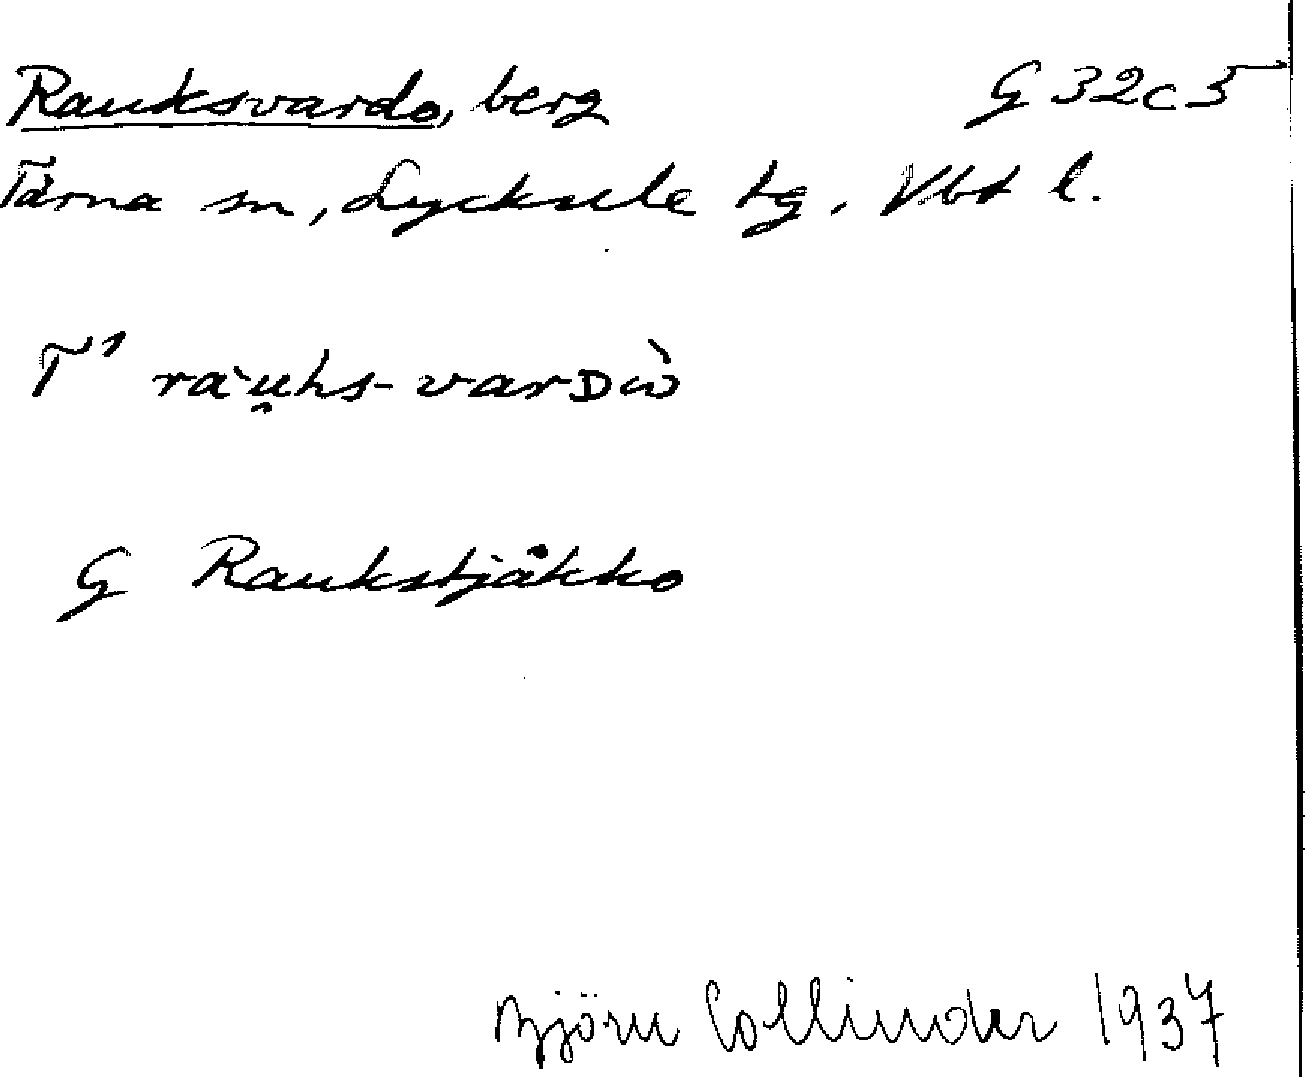 Rauksvardo, berg G 32c5
Tärna sn, Lycksele tg. Vbt l.
T¹ ràu̯hs-varᴅὼ
G Raukstjåkko
Björn Collinder 1937